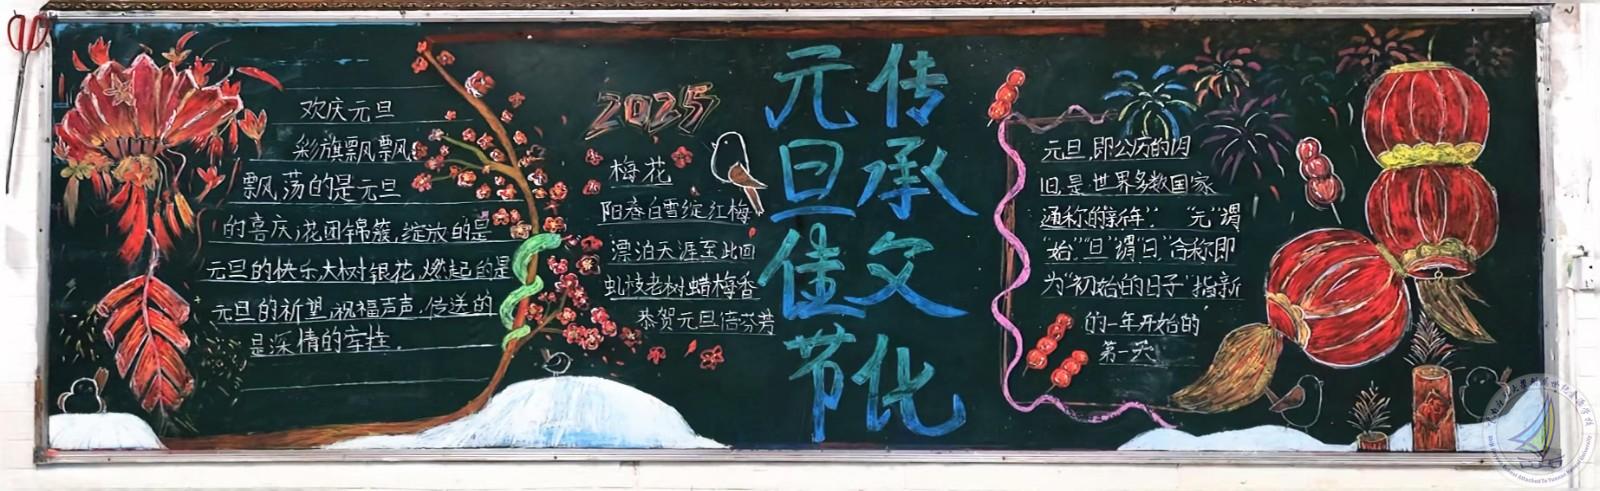 欢庆元旦
彩旗飘飘
飘荡的是元旦
的喜庆,花团锦簇,绽放的是
元旦的快乐,火树银花,燃起的是
元旦的祈望,祝福声声,传送的
是深情的牵挂。
2025
梅花
阳春白雪绽红梅
漂泊天涯至此回
虬枝老树蜡梅香
恭贺元旦倍芬芳
传承文化
元旦佳节
元旦,即公历的1月
1日,是世界多数国家
通称的"新年"。"元"谓
"始","旦"谓"日",合称即
为"初始的日子"指新
的一年开始的
第一天